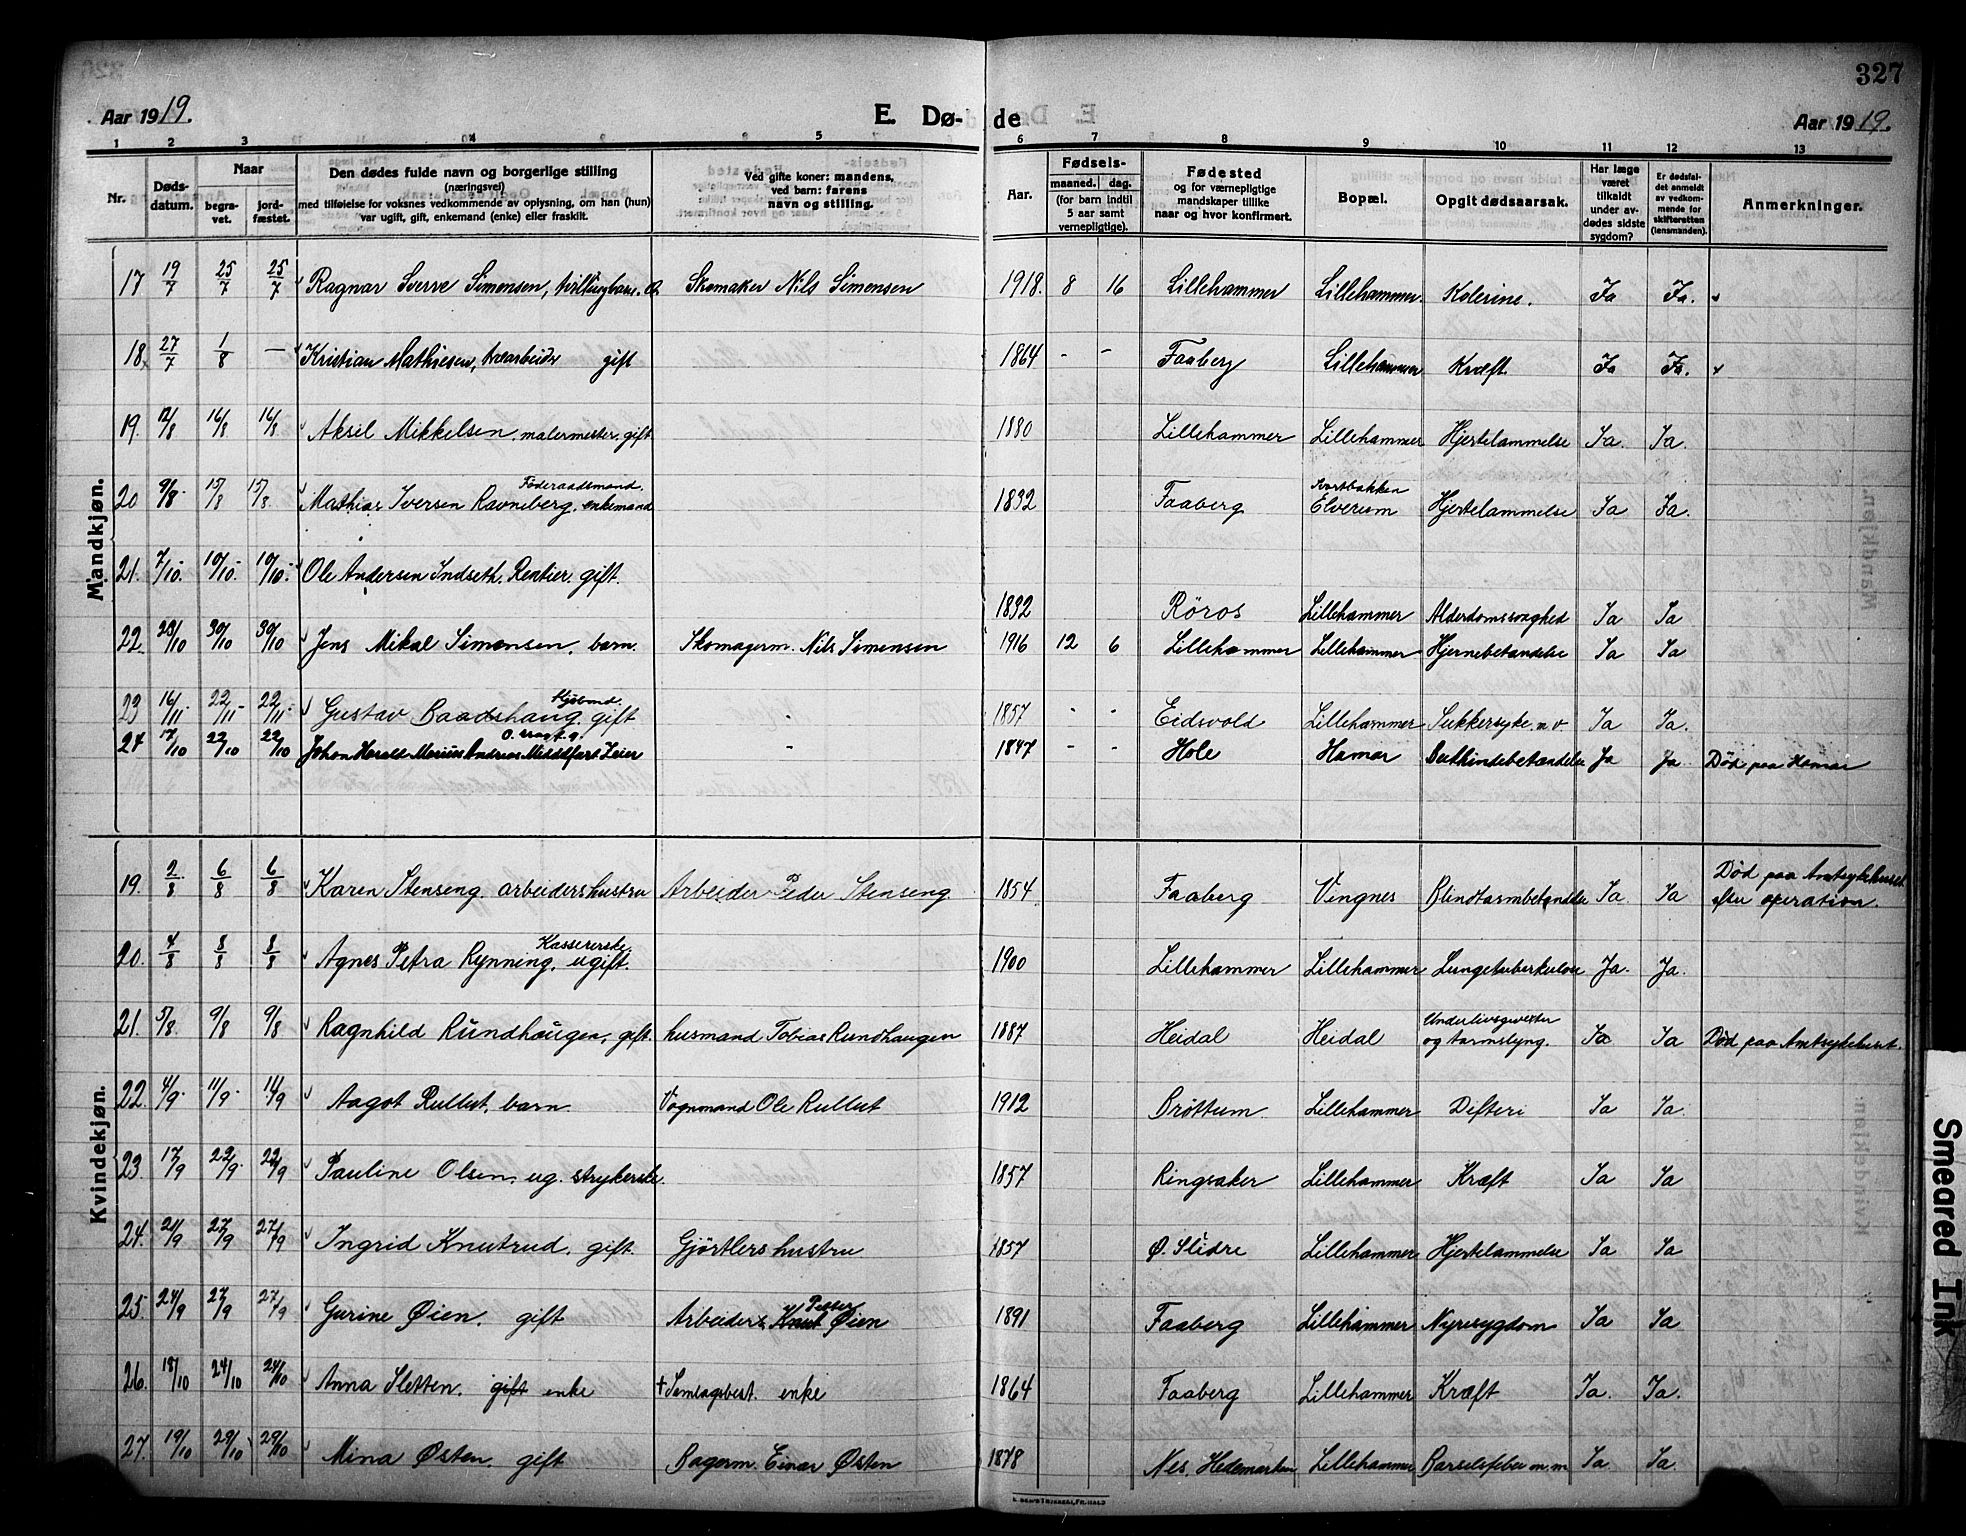 327
Aar 1919.
E. Dø-
de
Aar 1919.
1 2 3 4 5 6 7 8 9 10 11 12 13
Nr.
Døds-
datum.
Naar
begra-
vet.
jord-
fæstet.
Den dødes fulde navn og borgerlige stilling
(næringsvei)
med tilføielse for voksnes vedkommende av oplysning, om han (hun)
var ugift, gift, enkemand (enke) eller fraskilt.
Ved gifte koner: mandens,
ved barn: farens
navn og stilling.
Aar.
Fødsels-
maaned. dag.
(for barn indtil
5 aar samt
vernepligtige).
Fødested
og for værnepligtige
mandskaper tillike
naar og hvor konfirmert.
Bopæl.
Opgit dødsaarsak.
Har læge
været
tilkaldt
under av-
dødes sidste
sygdom?
Er dødsfal-
det anmeldt
av vedkom-
mende for
skifteretten
(lensmanden).
Anmerkninger.
Mandkjøn.
17 19/7 25/7 25/7 Ragnar Sverre Simensen, tvillingbarn. Skomaker Nils Simensen 1918. 8 16 Lillehammer Lillehammer. Kolerine. Ja Ja.
18 27/7 1/8 — Kristian Mathiesen, træarbeider gift 1864 - - Faaberg Lillehammer Kræft. Ja Ja.
19. 12/8 16/8 16/8 Aksel Mikkelsen. malermester, gift 1880 Lillehammer Lillehammer Hjertelammelse Ja. Ja.
Føderaadsmand. Svartbakken
20 9/8 15/8 15/8. Mathias Iversen Ravneberg, enkemand 1832 Faaberg Elverum Hjertelammelse Ja Ja.
21. 7/10. 10/10. 10/10. Ole Andersen Indseth. Rentier. gift.
1832 Röros Lillehammer Alderdomssvaghed Ja Ja
22. 23/10 30/10 30/10 Jens Mikal Simensen, barn. Skomagerm. Nils Simensen 1916 12 6 Lillehammer Lillehammer Hjernebetændelse Ja Ja
23 16/11 22/11 22/11 Gustav Baadshaug. gift - 1857 - - Eidsvold Lillehammer Sukkersyke m.v. Ja Ja.
24 17/10 22/10 22/10 Johan Harald Marius Andreas Middelfart Leier - 1847 - - Hole Hamar Bukhindebetændelse Ja Ja Död paa Hamar
Kvindekjøn.
19. 2/8 6/8 6/8 Karen Stenseng. arbeidershustru Arbeider Peder Stenseng 1854 Faaberg Vingnes Blindtarmbetændelse Ja. Ja Död paa Amtsykehuset
efter operation.
Kassererske.
20. 4/8 8/8 8/8 Agnes Petra Rynning. ugift. 1900 Lillehammer Lillehammer Lungetuberkulose Ja. Ja.
Underlivsgvekster
21. 5/8. 9/8 9/8 Ragnhild Rundhaugen, gift. husmand Tobias Rundhaugen 1887 Heidal Heidal og tarmslyng. Ja Ja Död paa Amtsykehuset.
22. 4/9. 11/9. 11/9 Aagot Rullut, barn. Vognmand Ole Rullut 1912 Bröttum Lillehammer Difteri Ja Ja.
23. 17/9 22/9. 22/9 Pauline Olsen, ug. strykerske 1857 Ringsaker Lillehammer Kræft Ja Ja
24. 21/9 27/9 27/9 Ingrid Knutrud, gift. Gjörtlers hustru 1857 Ø. Slidre Lillehammer Hjertelammelse Ja Ja
Petter
25. 24/9 27/9 27/9 Gurine Øien. gift Arbeider Knut Øien 1891 Faaberg Lillehammer Nyresygdom Ja Ja
26. 18/10 24/10 24/10 Anna Sletten. gift enke † Samlagsbest. enke 1864 Faaberg Lillehammer Kræft Ja. Ja.
27. 19/10 29/10 29/10 Mina Østen. gift Bagerm. Einar Østen 1878 Nes, Hedemarken Lillehammer Barselsfeber m.m Ja Ja.
Smeared Ink